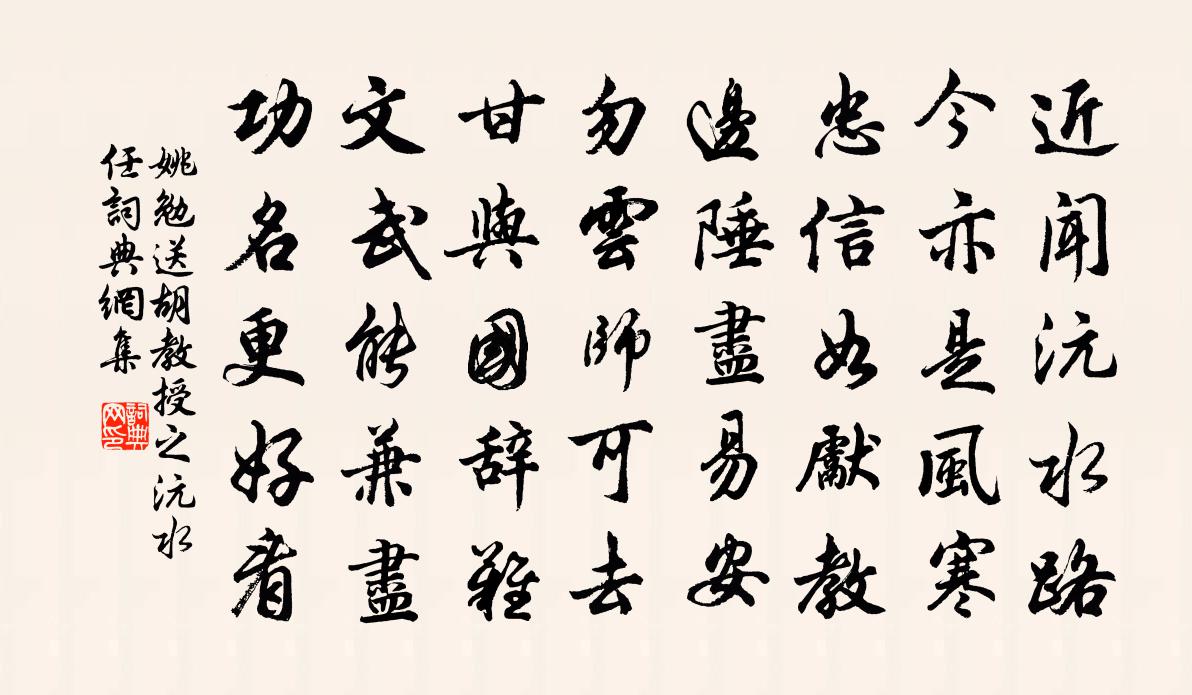 近聞沅水路
今亦是風寒
忠信如獻教
邊陲盡易安
勿雲師可去
甘與國辭難
文武能兼盡
功名更好看
姚勉送胡教授之沅水
任詞典網集
詞典網印